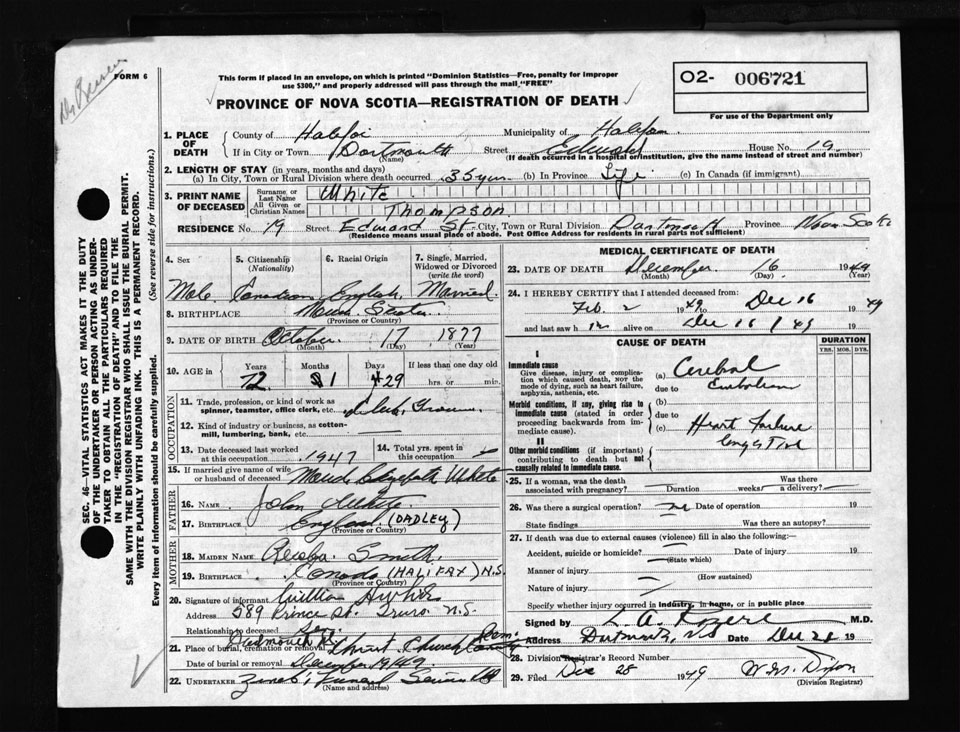 FORM 6
This form if placed in an envelope, on which is printed "Dominion Statistics—Free, penalty for improper
use $300," and properly addressed will pass through the mail "FREE"
O2- 006721
For use of the Department only
PROVINCE OF NOVA SCOTIA—REGISTRATION OF DEATH
SEC. 46—VITAL STATISTICS ACT MAKES IT THE DUTY
OF THE UNDERTAKER OR PERSON ACTING AS UNDER-
TAKER TO OBTAIN ALL THE PARTICULARS REQUIRED
IN THE "REGISTRATION OF DEATH" AND TO FILE THE
SAME WITH THE DIVISION REGISTRAR WHO SHALL ISSUE THE BURIAL PERMIT.
WRITE PLAINLY WITH UNFADING INK. THIS IS A PERMANENT RECORD.
Every item of information should be carefully supplied. (See reverse side for instructions.)
1. PLACE OF DEATH
County of Halifax Municipality of Halifax
If in City or Town Dartmouth Street Edward House No. 19
(Name) (If death occurred in a hospital or institution, give the name instead of street and number)
2. LENGTH OF STAY (in years, months and days)
(a) In City, Town or Rural Division where death occurred 35 yrs. (b) In Province Life (c) In Canada (if immigrant)
3. PRINT NAME OF DECEASED
Surname or Last Name White
All Given or Christian Names Thompson
RESIDENCE No. 19 Street Edward St. City, Town or Rural Division Dartmouth Province Nova Scotia
(Residence means usual place of abode. Post Office Address for residents in rural parts not sufficient)
4. Sex 5. Citizenship (Nationality) 6. Racial Origin 7. Single, Married, Widowed or Divorced (write the word)
Male Canadian English Married
8. BIRTHPLACE Nova Scotia
(Province or Country)
9. DATE OF BIRTH October 17 1877
(Month) (Day) (Year)
10. AGE in Years Months Days If less than one day old
72 1 29 hrs. or min.
OCCUPATION
11. Trade, profession or kind of work as
spinner, teamster, office clerk, etc.
12. Kind of industry or business, as cotton-
mill, lumbering, bank, etc. —
13. Date deceased last worked at this occupation 1947 14. Total yrs. spent in this occupation
15. If married give name of wife or husband of deceased Maude Elizabeth White
FATHER
16. NAME John White
17. BIRTHPLACE England (DADLEY)
(Province or Country)
MOTHER
18. MAIDEN NAME Smith
19. BIRTHPLACE Canada (HALIFAX) N.S.
(Province or Country)
20. Signature of informant William White
Address 589 Prince St. Truro N.S.
Relationship to deceased Son
21. Place of burial, cremation or removal Dartmouth Christ Church Cemetery
Date of burial or removal December 19/49
22. UNDERTAKER Funeral Service
(Name and address)
MEDICAL CERTIFICATE OF DEATH
23. DATE OF DEATH December 16 1949
(Month) (Day)
24. I HEREBY CERTIFY that I attended deceased from:
Feb. 2 1949 to Dec 16 1949
and last saw h im alive on Dec 16/49 19
CAUSE OF DEATH
DURATION
YRS. MOS. DYS.
I
Immediate cause
Give disease, injury or compli-
cation which caused death, NOT the
mode of dying, such as heart failure,
asphyxia, asthenia, etc.
(a) Cerebral
due to Embolism
Morbid conditions, if any, giving rise to
immediate cause (stated in order
proceeding backwards from im-
mediate cause).
(b)
due to
(c) Heart Failure
Congestive
II
Other morbid conditions (if important)
contributing to death but not
causally related to immediate cause.
25. If a woman, was the death associated with pregnancy? Duration weeks Was there a delivery?
26. Was there a surgical operation? no Date of operation 19
State findings Was there an autopsy?
27. If death was due to external causes (violence) fill in also following:
Accident, suicide or homicide? Date of injury 19
(State which)
Manner of injury
(How sustained)
Nature of injury
Specify whether injury occurred in industry, in home, or in public place
Signed by M.D.
Address Dartmouth, NS Date Dec 21 19
28. Division Registrar's Record Number
29. Filed Dec 28 1949 Dixon
(Division Registrar)